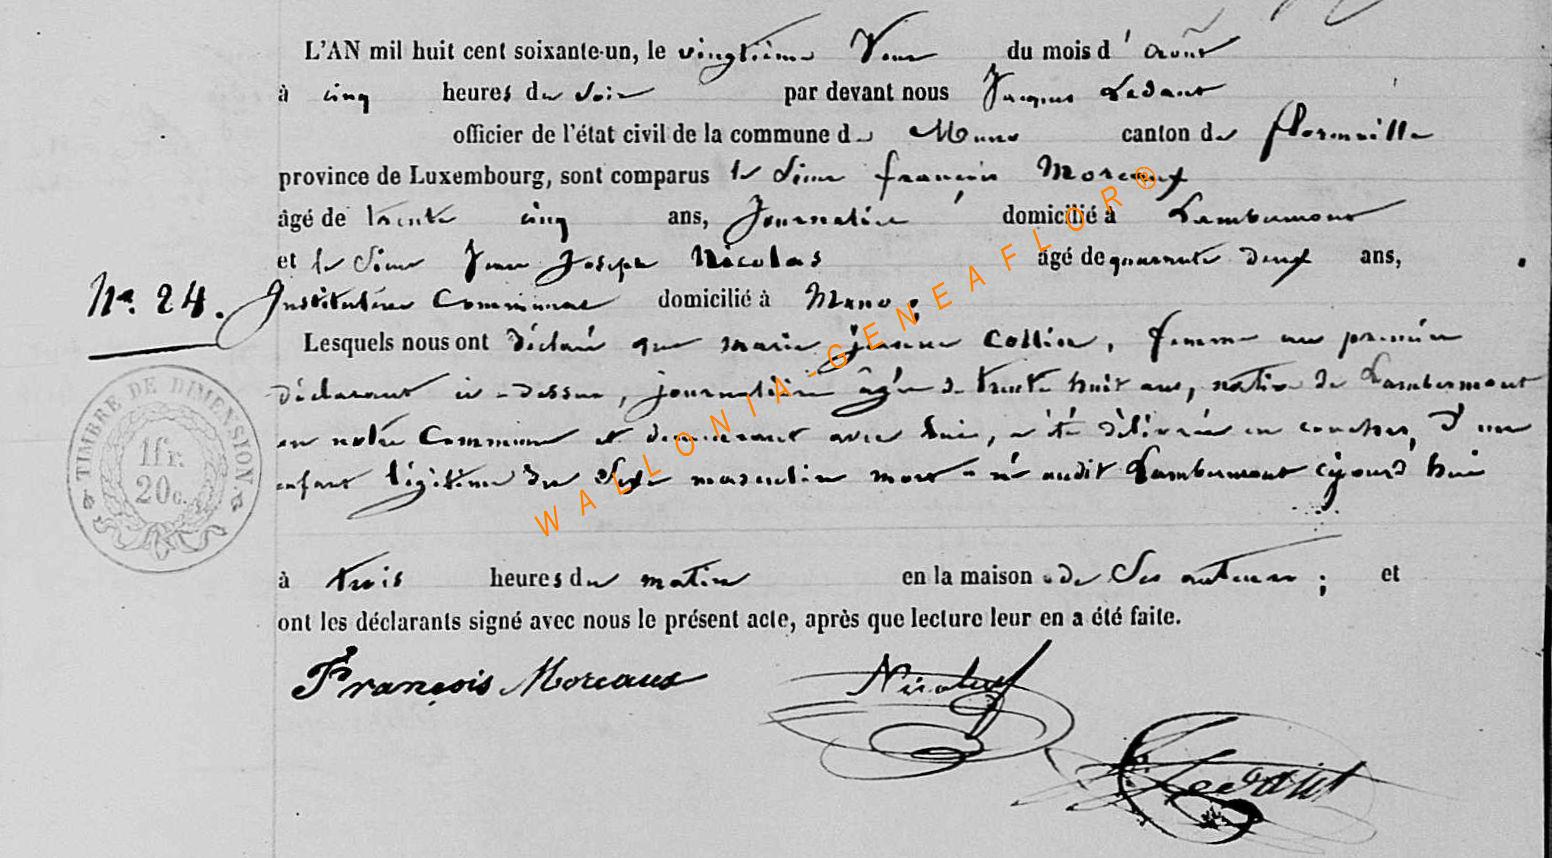 L'AN mil huit cent soixante-un, le vingtième Jour du mois d'Août
à cinq heures du soir par devant nous Jacques Ledant
officier de l'état civil de la commune de Muno canton de florenville
province de Luxembourg, sont comparus le Sieur françois Moreaux
âgé de trente cinq ans, Journalier domicilié à Lambermont
et le Sieur Jean Joseph Nicolas âgé de quarante deux ans,
No. 24. Instituteur Communal domicilié à Muno;
Lesquels nous ont déclaré que marie jeanne Collin, femme au premier
déclarant ci-dessus, journalière âgée de trente huit ans, native de Lambermont
en notre Commune et demeurant avec lui, a été délivrée en couches, d'un
enfant légitime du Sexe masculin mort-né audit Lambermont cejourd'hui
TIMBRE DE DIMENSION.
1 fr.
20c.
à trois heures du matin en la maison de Ses auteurs; et
ont les déclarants signé avec nous le présent acte, après que lecture leur en a été faite.
François Moreaux Nicolas
Ledant
WALLONIA-GENEAFLOR®